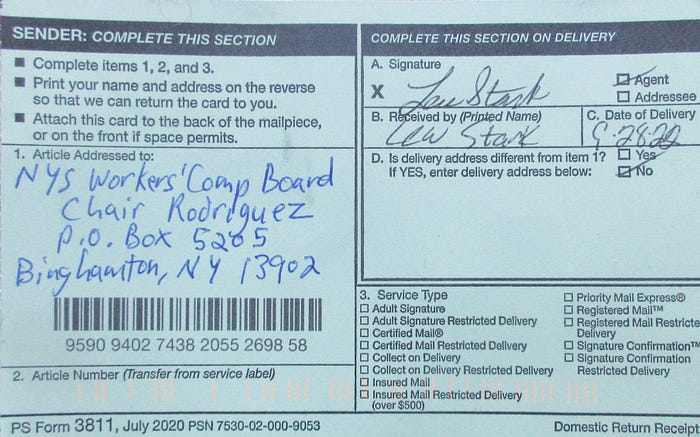 SENDER: COMPLETE THIS SECTION
■ Complete items 1, 2, and 3.
■ Print your name and address on the reverse
so that we can return the card to you.
■ Attach this card to the back of the mailpiece,
or on the front if space permits.
1. Article Addressed to:
NYS Workers' Comp Board
Chair Rodriguez
P.O. Box 5205
Binghamton, NY 13902
9590 9402 7438 2055 2698 58
2. Article Number (Transfer from service label)
COMPLETE THIS SECTION ON DELIVERY
A. Signature
X Lew Stark
☑ Agent
☐ Addressee
B. Received by (Printed Name)
Lew Stark
C. Date of Delivery
9-28-22
D. Is delivery address different from item 1? ☐ Yes
If YES, enter delivery address below: ☑ No
3. Service Type
☐ Adult Signature
☐ Adult Signature Restricted Delivery
☐ Certified Mail®
☐ Certified Mail Restricted Delivery
☐ Collect on Delivery
☐ Collect on Delivery Restricted Delivery
☐ Insured Mail
☐ Insured Mail Restricted Delivery
(over $500)
☐ Priority Mail Express®
☐ Registered Mail™
☐ Registered Mail Restricte
Delivery
☐ Signature Confirmation™
☐ Signature Confirmation
Restricted Delivery
PS Form 3811, July 2020 PSN 7530-02-000-9053
Domestic Return Receipt